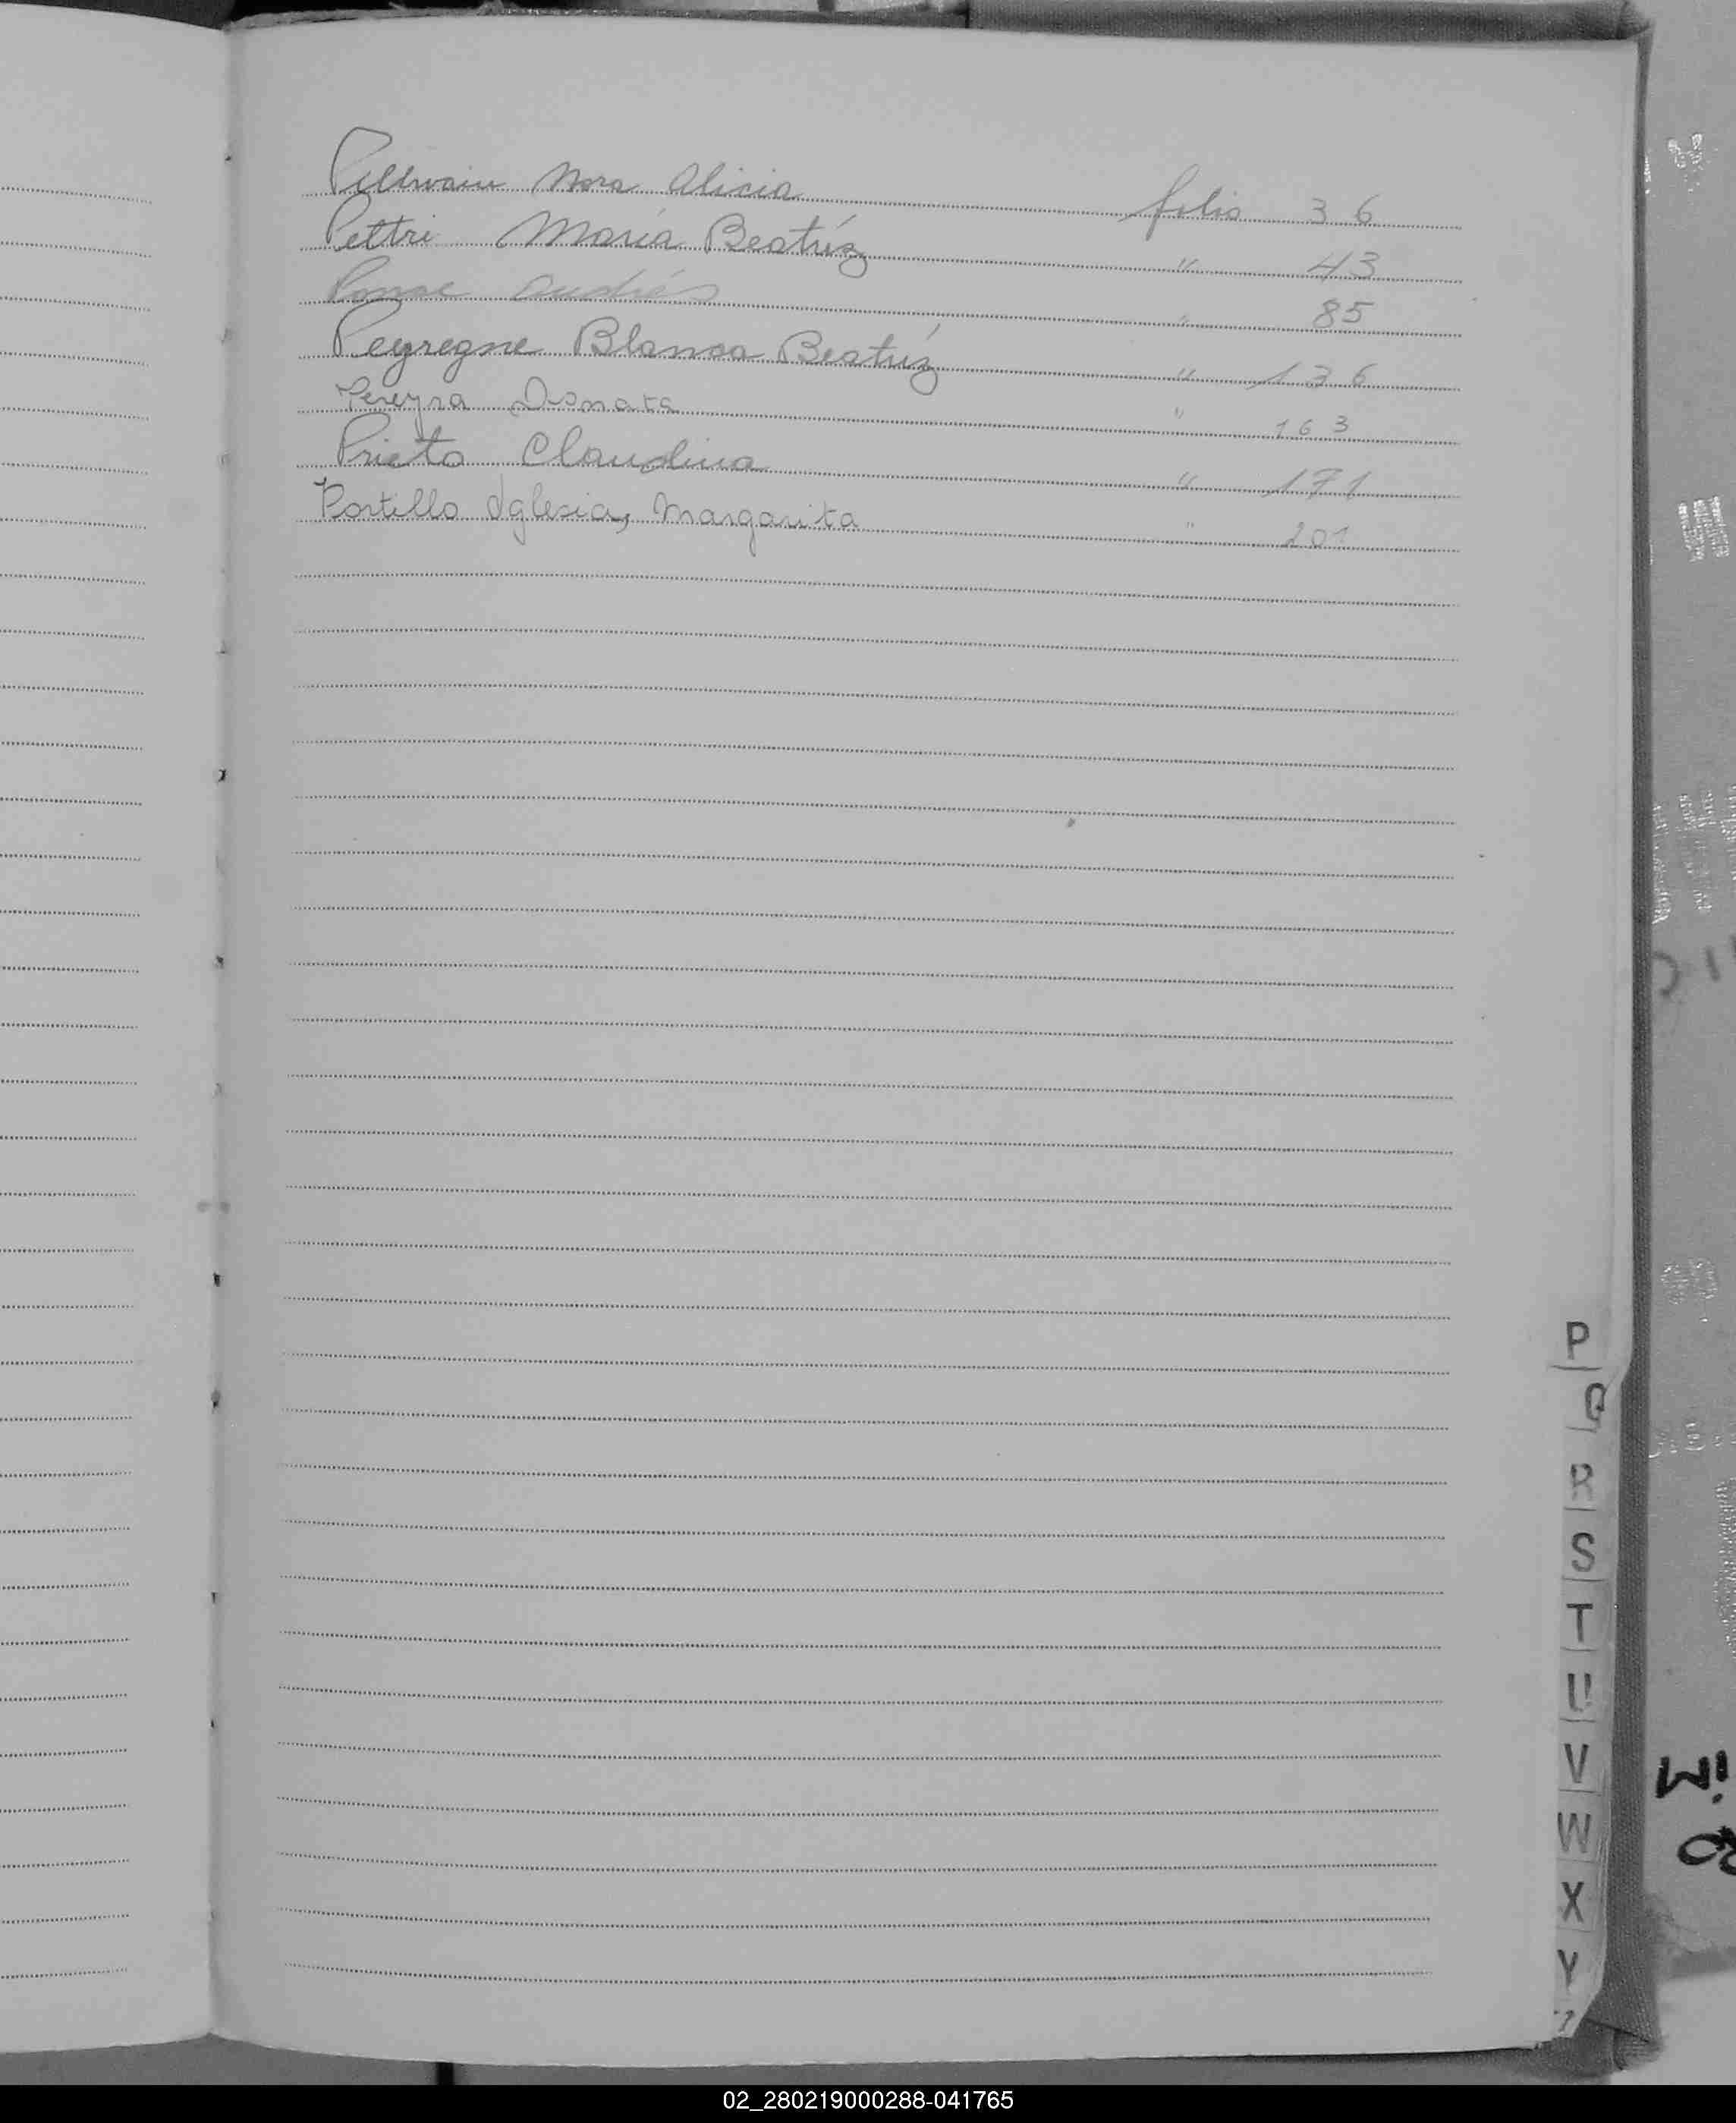 Nora Alicia folio 36
Pettri María Beatríz " 43
Ponse Andrés " 85
Peyregne Blanca Beatríz " 136
Pereyra Donata " 163
Prieto Claudina " 171
Portillo Iglesias, Margarita " 201
P
Q
R
S
T
U
V
W
X
Y
02_280219000288-041765